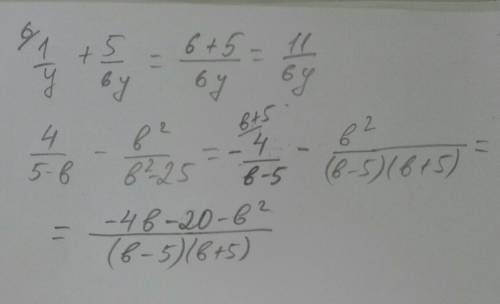 б) 1/y + 5/6y = (6+5)/6y = 11/6y
4/(5-в) - в²/(в²-25) = -4/(в-5) (в+5 - в²/((в-5)(в+5)) =
= (-4в-20-в²)/((в-5)(в+5))